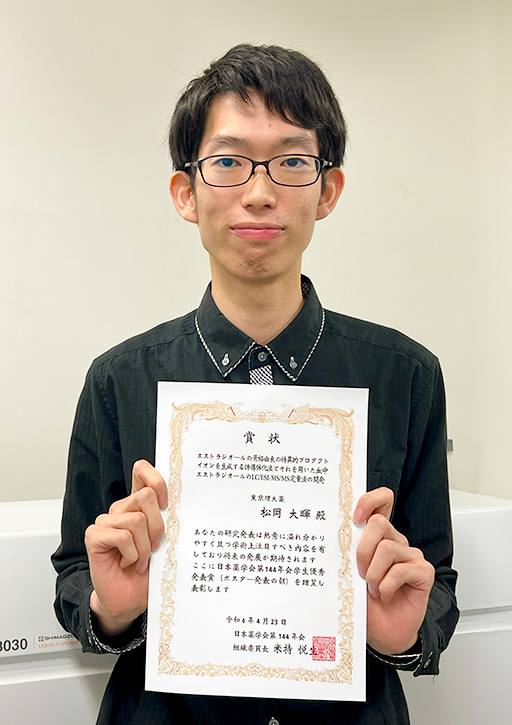 賞状
エストラジオールの骨格由来の特異的プロダクト
イオンを生成する誘導体化法とそれを用いた血中
エストラジオールのLC/ESI-MS/MS定量法の開発
東京理大薬
松岡 大暉 殿
あなたの研究発表は熱意に溢れ分かり
やすく且つ学術上注目すべき内容を有
しており将来の発展が期待されます
ここに日本薬学会第144年会学生優秀
発表賞（ポスター発表の部）を贈呈し
表彰します
令和6年4月23日
日本薬学会第144年会
組織委員長 米持 悦生
3030
SHIMADZU
LIQUID